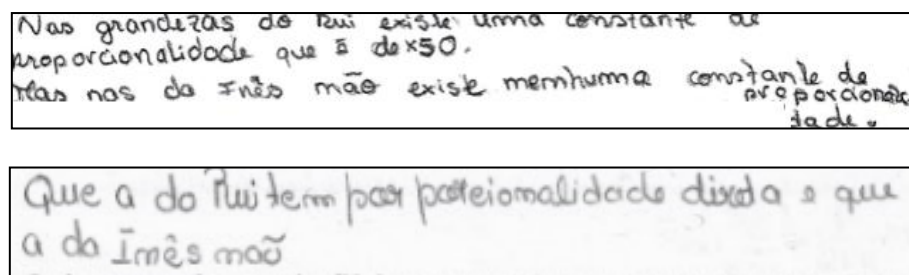 Nas grandezas do Rui existe umma constante de
proporcionalidade que é de x50.
Mas nas da Inês mão existe memhumma constante de
proporcionali
dade.
Que a do Rui tem porporcionalidade direta e que
a da Imês maõ